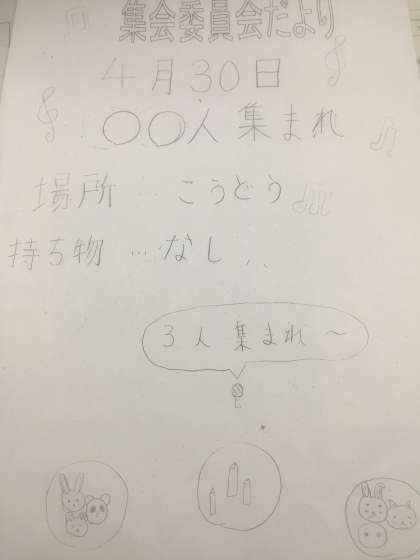 集会委員会だより
4月30日
〇〇人集まれ
場所 … こうどう
持ち物 … なし
3人集まれ〜